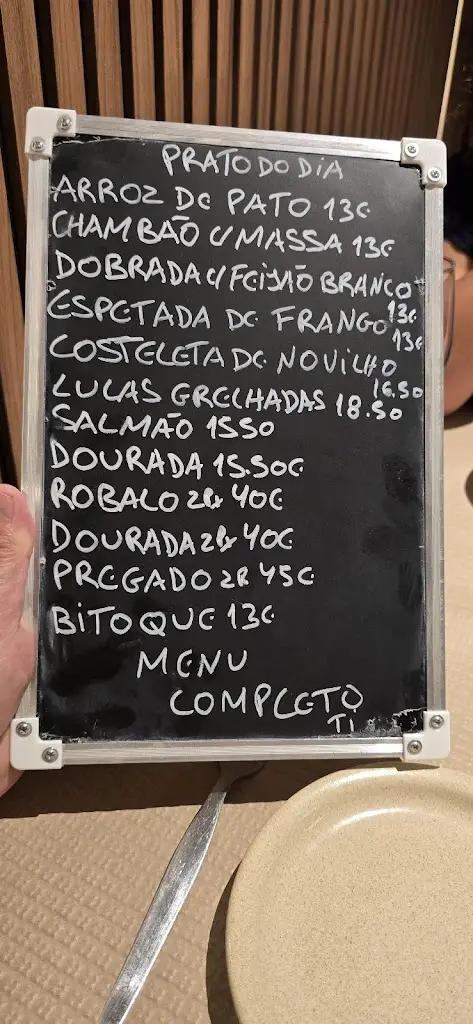 PRATO DO DIA
ARROZ DE PATO 13€
CHAMBÃO C/MASSA 13€
DOBRADA C/FEIJÃO BRANCO
13€
ESPETADA DE FRANGO
13€
COSTELETA DE NOVILHO
16.50
LULAS GRELHADAS 18.50
SALMÃO 1550
DOURADA 15.50€
ROBALO 2P 40€
DOURADA 2P 40€
PREGADO 2P 45€
BITOQUE 13€
MENU
COMPLETO